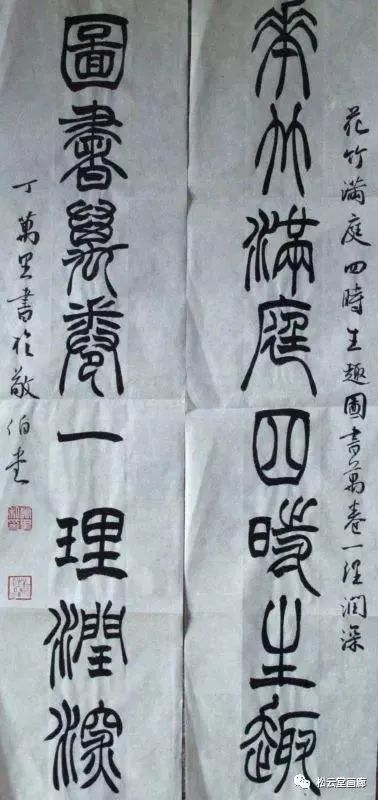 花竹满庭四時生趣圖書萬卷一理潤深
華竹滿庭四時生趣
圖書萬卷一理潤深
丁萬里書於敬伯堂
松云堂画廊